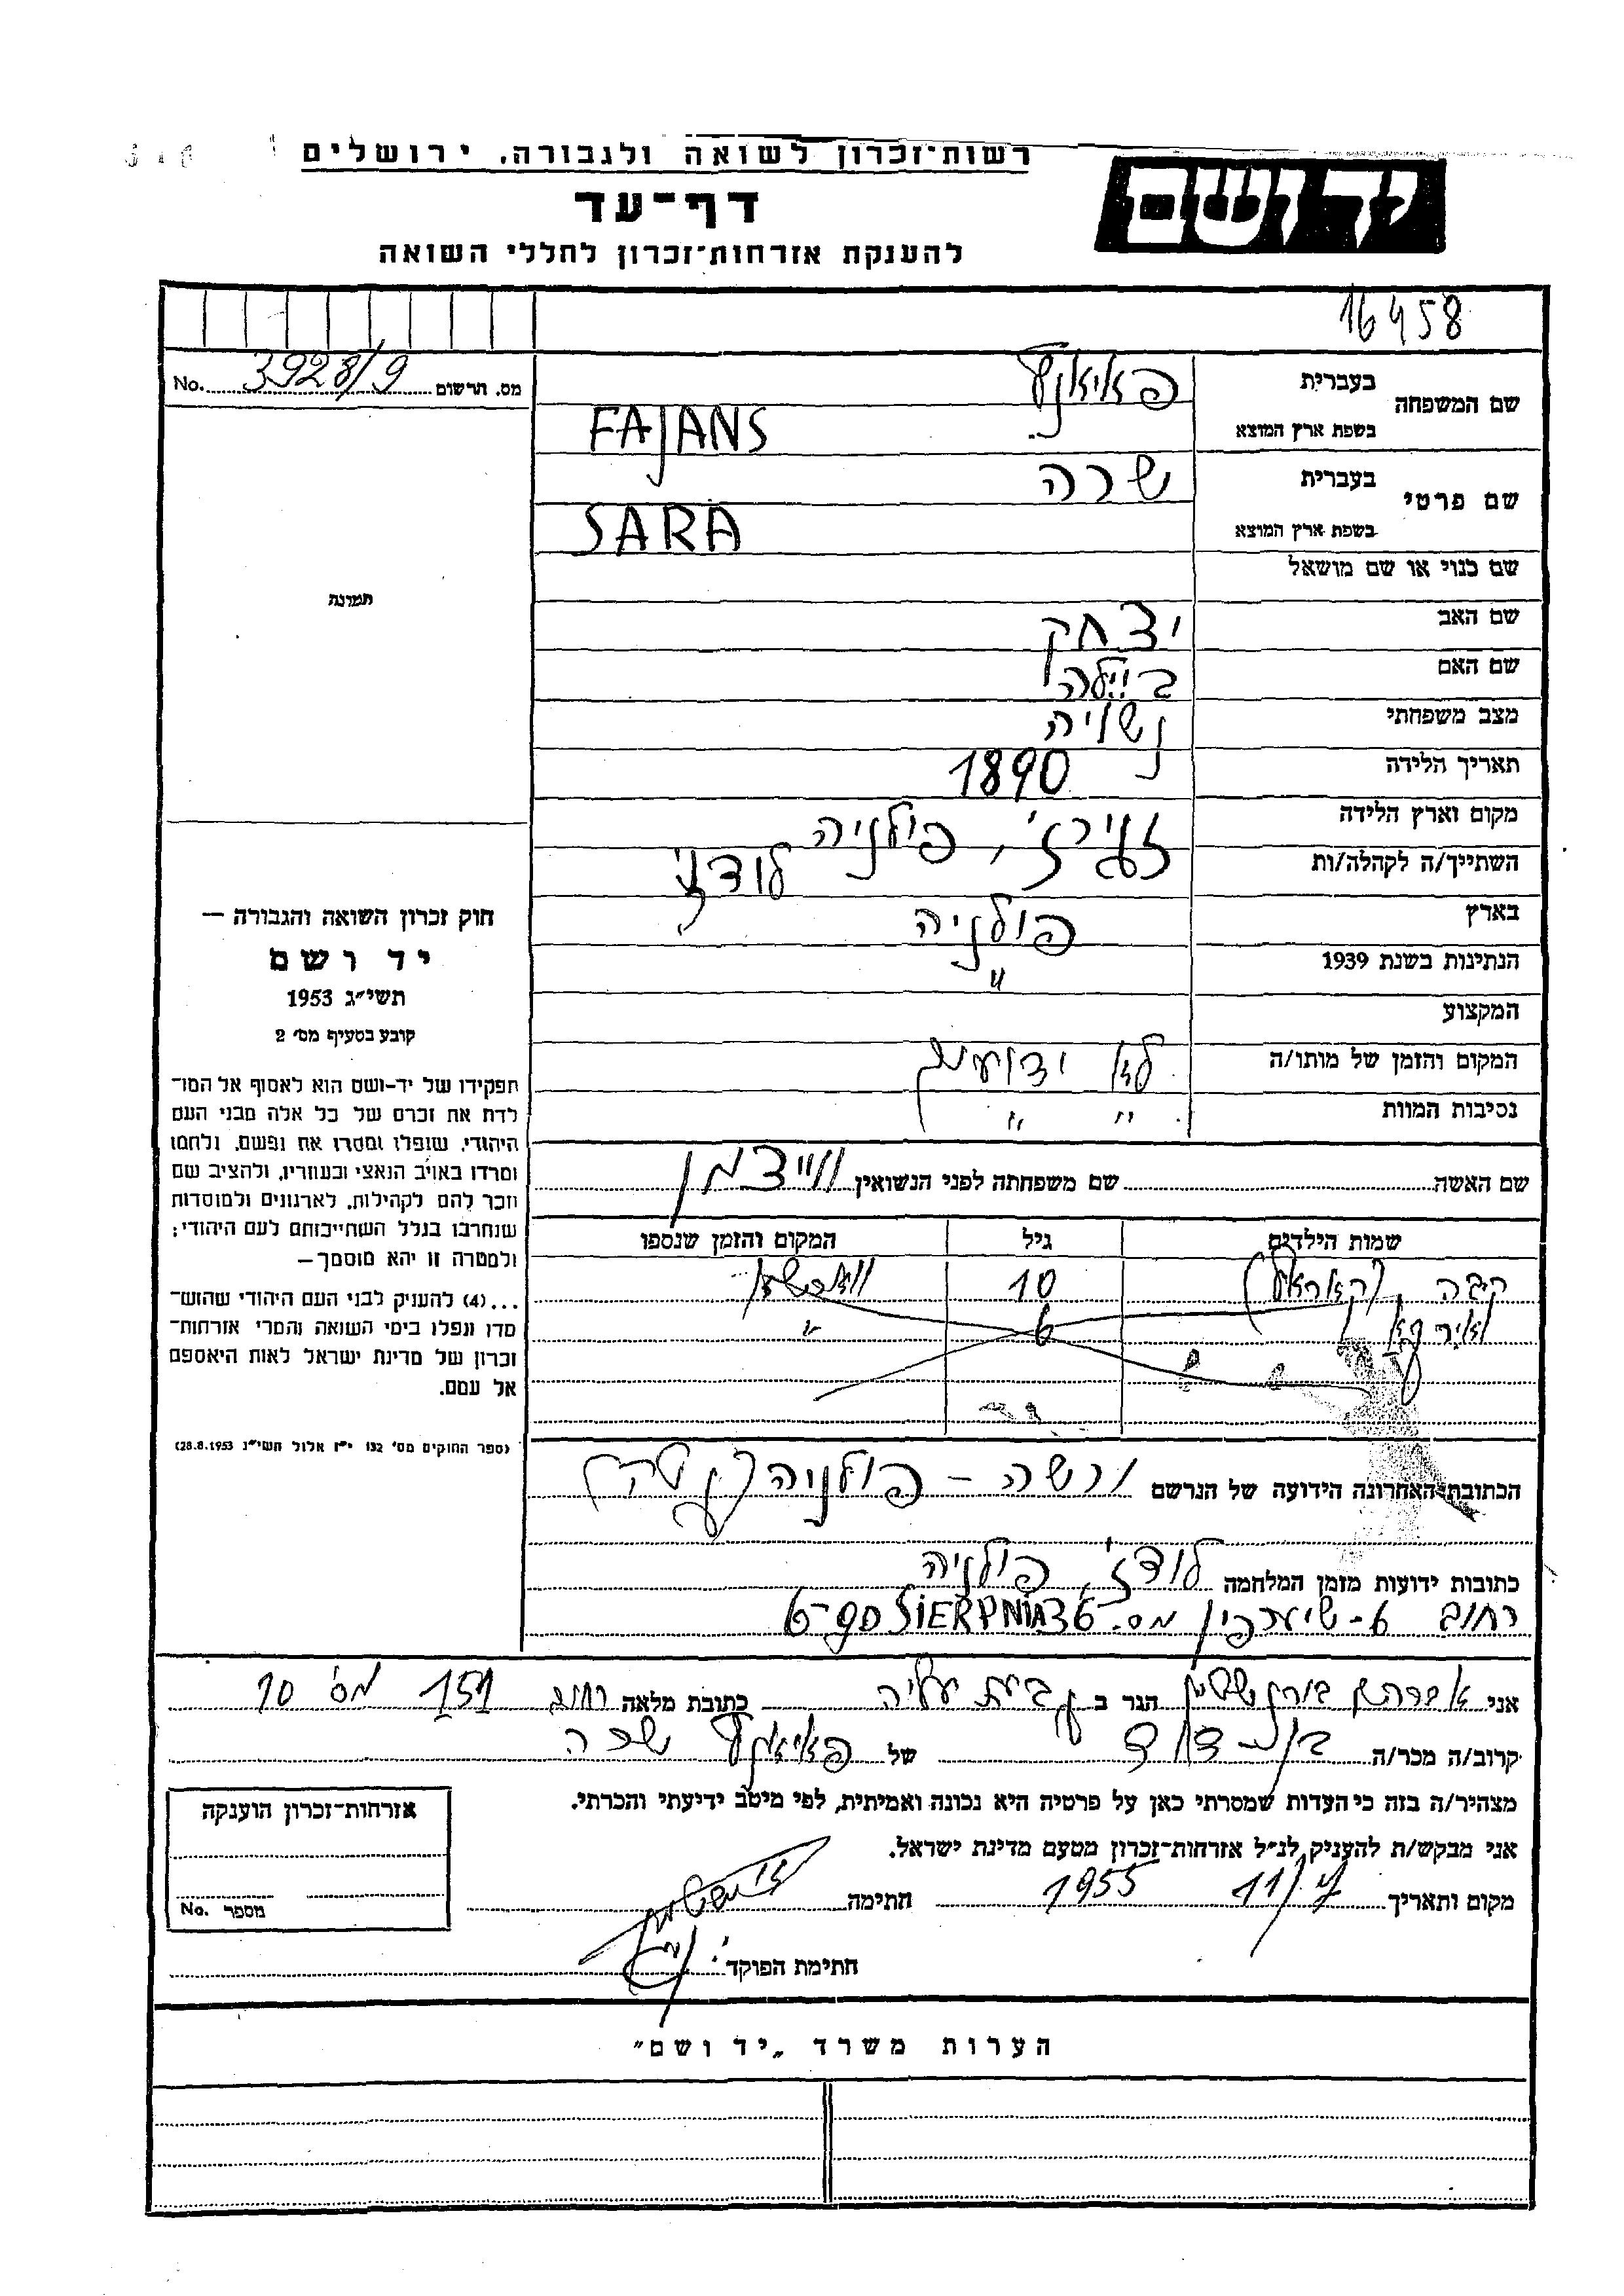 רשות־זכרון לשואה ולגבורה, ירושלים
יד ושם
דף־עד
להענקת אזרחות־זכרון לחללי השואה
16458
מס. תרשום 3928/9 No.
שם המשפחה
בעברית
בשפת ארץ המוצא FAJANS
שם פרטי
בעברית שרה
בשפת ארץ המוצא SARA
שם כנוי או שם מושאל
שם האב יצחק
שם האם ביילה
מצב משפחתי נשואה
תאריך הלידה 1890
מקום וארץ הלידה זגירז', פולניה
השתייך/ה לקהלה/ות לודז'
בארץ פולניה
הנתינות בשנת 1939 "
המקצוע
המקום והזמן של מותו/ה לא ידועים
נסיבות המוות " "
תמונה
חוק זכרון השואה והגבורה —
יד ושם
תשי״ג 1953
קובע בסעיף מס׳ 2
תפקידו של יד-ושם הוא לאסוף אל המו־
לדת את זכרם של כל אלה מבני העם
היהודי, שנפלו ומסרו את נפשם, נלחמו
ומרדו באויב הנאצי ובעוזריו, ולהציב שם
וזכר להם לקהילות, לארגונים ולמוסדות
שנחרבו בגלל השתייכותם לעם היהודי;
ולמטרה זו יהא מוסמך —
...(4) להעניק לבני העם היהודי שהוש־
מדו ונפלו בימי השואה והמרי אזרחות־
זכרון של מדינת ישראל לאות היאספם
אל עמם.
(ספר החוקים מס׳ 132 י״ז אלול תשי״ג 28.8.1953)
שם האשה שם משפחתה לפני הנשואין ווייצמן
שמות הילדים גיל המקום והזמן שנספו
10
6 "
הכתובת האחרונה הידועה של הנרשם ורשה – פולניה (גטו)
כתובות ידועות מזמן המלחמה לודז', פולניה
רחוב 6- מס. 36 6-go SIERPNIA
אני אברהם הגר ב גבעת עליה כתובת מלאה רחוב 151 מס' 10
קרוב/ה מכר/ה בן דוד של פאיאנס שרה
מצהיר/ה בזה כי העדות שמסרתי כאן על פרטיה היא נכונה ואמיתית, לפי מיטב ידיעתי והכרתי.
אני מבקש/ת להעניק לנ״ל אזרחות־זכרון מטעם מדינת ישראל.
מקום ותאריך 11/7 1955 חתימה
חתימת הפוקד
אזרחות־זכרון הוענקה
מספר No.
הערות משרד „יד ושם”